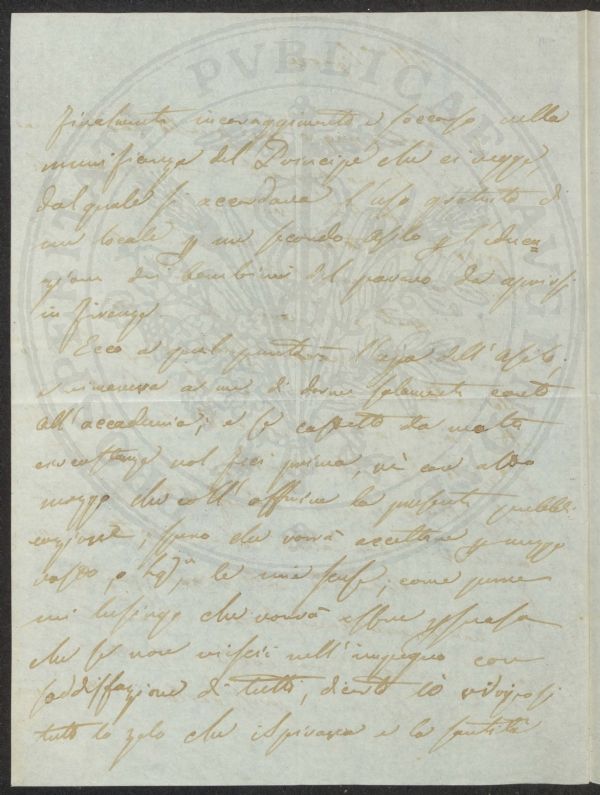 finalmente incoraggimento e soccorso nella
munificenza del Principe che ci regge,
dal quale si accordava l'uso gratuito di
un locale p un secondo asilo p l'educa=
zione dei bambini del povero da aprirsi
in Firenze
Ecco a qual punto l'asilo,
e rimaneva a me di darne solamente conto
all'accademia; e se costretto da molte
circostanze nol feci prima, nè con altro
mezzo che coll'offrire la presente pubbli-
cazione, spero che vorrà accettare p mezzo
vostro, o Sig.r le mie scuse, come pure
mi lusingo che vorrà essere persuasa
che se non riuscii nell'impegno con
soddisfazione di tutti, diento lò vi posi
tutto lo zelo che ispirava e la santità